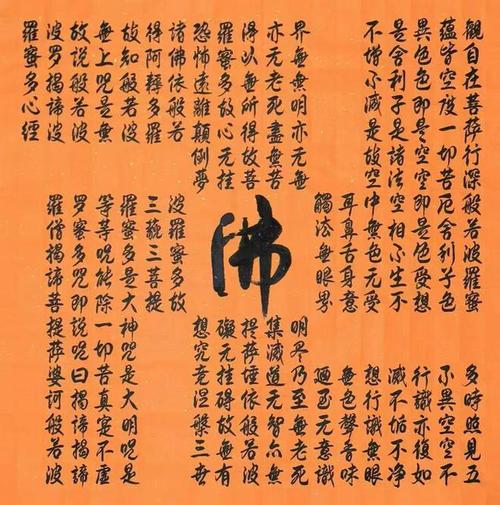 觀自在菩薩行深般若波羅蜜
多時照見五
蘊皆空度一切苦厄舍利子色
不異空空不
異色色即是空空即是色受想
行識亦復如
是舍利子是諸法空相不生不
滅不垢不净
不增不減是故空中無色无受
想行識無眼
耳鼻舌身意
無色聲香味
觸法無眼界
廼至无意識
界無無明亦无無
明盡乃至無老死
亦无老死盡無苦
集滅道无智亦無
得以無所得故菩
提薩埵依般若波
羅蜜多故心无挂
礙无挂碍故無有
恐怖遠離顛倒夢
想究竟涅槃三世
佛
諸佛依般若
波羅蜜多故
得阿耨多羅
三藐三菩提
故知般若波
羅蜜多是大神咒是大明咒是
無上咒是無
等等咒能除一切苦真實不虛
故說般若波
羅蜜多咒即說咒曰揭諦揭諦
波罗揭諦波
羅僧揭諦菩提薩婆訶般若波
羅蜜多心經